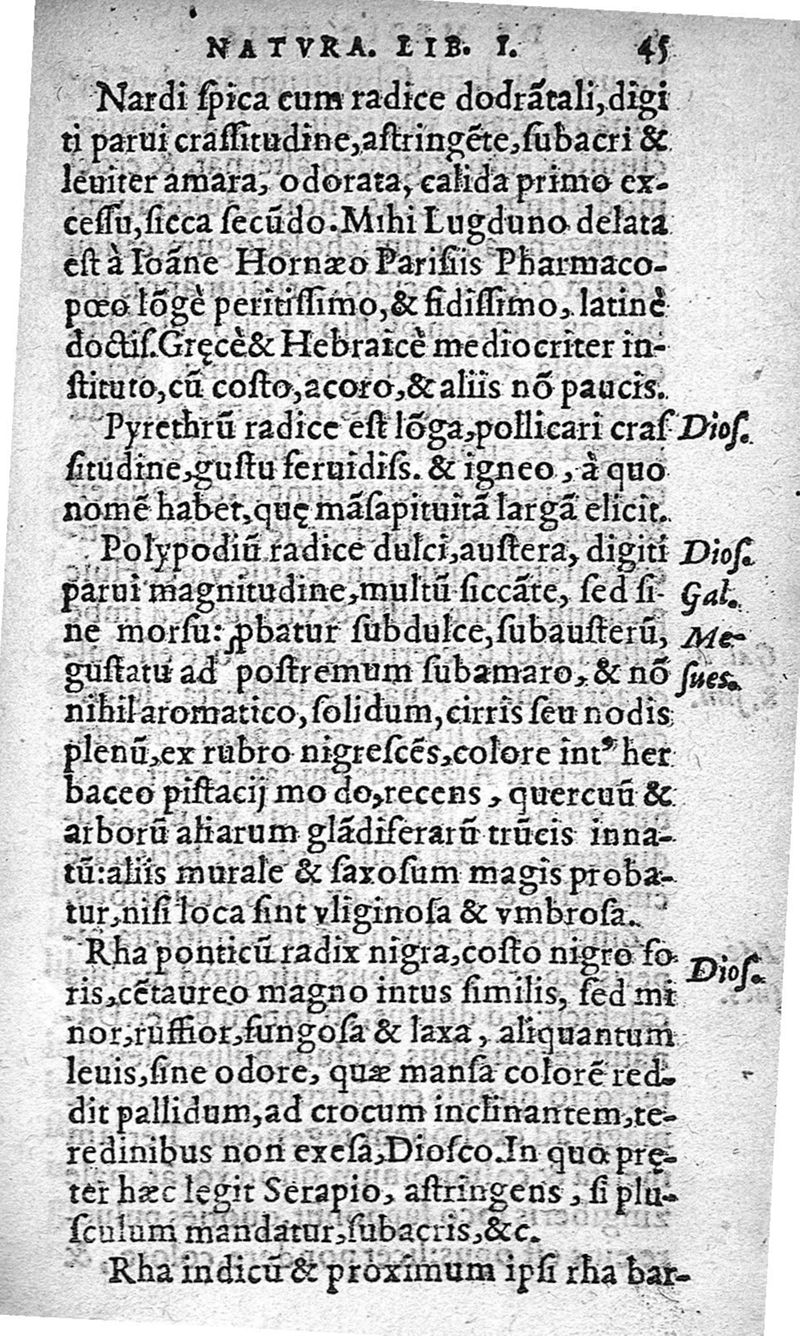 NATVRA. LIB. I. 45
Nardi ſpica cum radice dodrãtali,digi
ti parui craſſitudine,aſtringẽte,ſubacri &
leuiter amara, odorata, calida primo ex-
ceſſu,ſicca ſecũdo.Mihi Lugduno delata
eſt à Ioãne Hornæo Pariſiis Pharmaco-
pœo lõgè peritiſſimo,& fidiſſimo, latinè
doctiſ.Gręcè& Hebraicè mediocriter in-
ſtituto,cũ coſto,acoro,& aliis nõ paucis.
Pyrethrũ radice eſt lõga,pollicari craſ Dioſ.
ſitudine,guſtu feruidiſs. & igneo, à quo
nomẽ habet,quę mãſapituitã largã elicit.
Polypodiũ radice dulci,auſtera, digiti Dioſ.
parui magnitudine,multũ ſiccãte, ſed ſi- Gal.
ne morſu: ꝓbatur ſubdulce,ſubauſterũ, Me-
guſtatu ad poſtremum ſubamaro, & nõ ſues.
nihil aromatico,ſolidum,cirris ſeu nodis
plenũ,ex rubro nigreſcẽs,colore intꝰ her
baceo piſtacij mo do,recens, quercuũ &
arborũ aliarum glãdiferarũ trũcis inna-
tũ:aliis murale & ſaxoſum magis proba-
tur,niſi loca ſint vliginoſa & vmbroſa.
Rha ponticũ radix nigra,coſto nigro fo- Dioſ.
ris,cẽtaureo magno intus ſimilis, ſed mi
nor,ruffior,fungoſa & laxa, aliquantum
leuis,ſine odore, quæ manſa colorẽ red-
dit pallidum,ad crocum inclinantem,te-
redinibus non exeſa,Dioſco.In quo prę-
ter hæc legit Serapio, aſtringens, ſi plu-
ſculum mandatur,ſubacris,&c.
Rha indicũ & proximum ipſi rha bar-